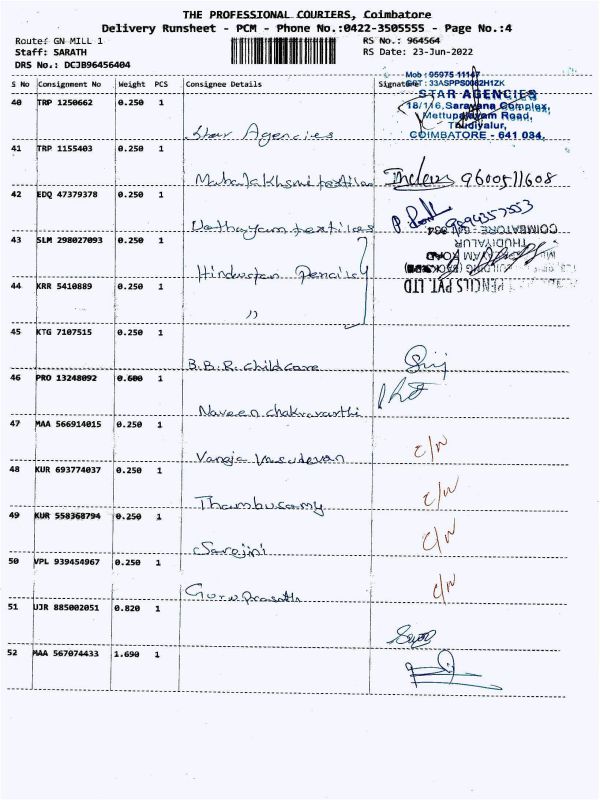 THE PROFESSIONAL COURIERS, Coimbatore
Delivery Runsheet - PCM - Phone No.:0422-3505555 - Page No.:4
Route: GN MILL 1
RS No.: 964564
Staff: SARATH
RS Date: 23-Jun-2022
DRS No.: DCJB96456404
S No Consignment No Weight PCS Consignee Details Signature
Mob : 95975 11147
STAR AGENCIES
18/116, Saravana Complex,
Mettupalayam Road,
Thudiyalur,
COIMBATORE - 641 034.
40 TRP 1250662 0.250 1
Star Agencies
41 TRP 1155403 0.250 1
Mahalakhsmi textiles 9600511608
42 EDQ 47379378 0.250 1
Udhayam textiles
COIMBATORE - 641 034
THUDIYALUR
43 SLM 298027093 0.250 1
Hindustan Pencils
PENCILS PVT. LTD
44 KRR 5410889 0.250 1
"
45 KTG 7107515 0.250 1
B.B.R. childcare
46 PRO 13248092 0.600 1
Naveen chakravarthi
47 MAA 566914015 0.250 1
Vanaja Vasudevan C/N
48 KUR 693774037 0.250 1
Thambusamy C/N
49 KUR 558368794 0.250 1
Sarojini C/N
50 VPL 939454967 0.250 1
Guru Prasath C/N
51 UJR 885002051 0.820 1
52 MAA 567074433 1.690 1